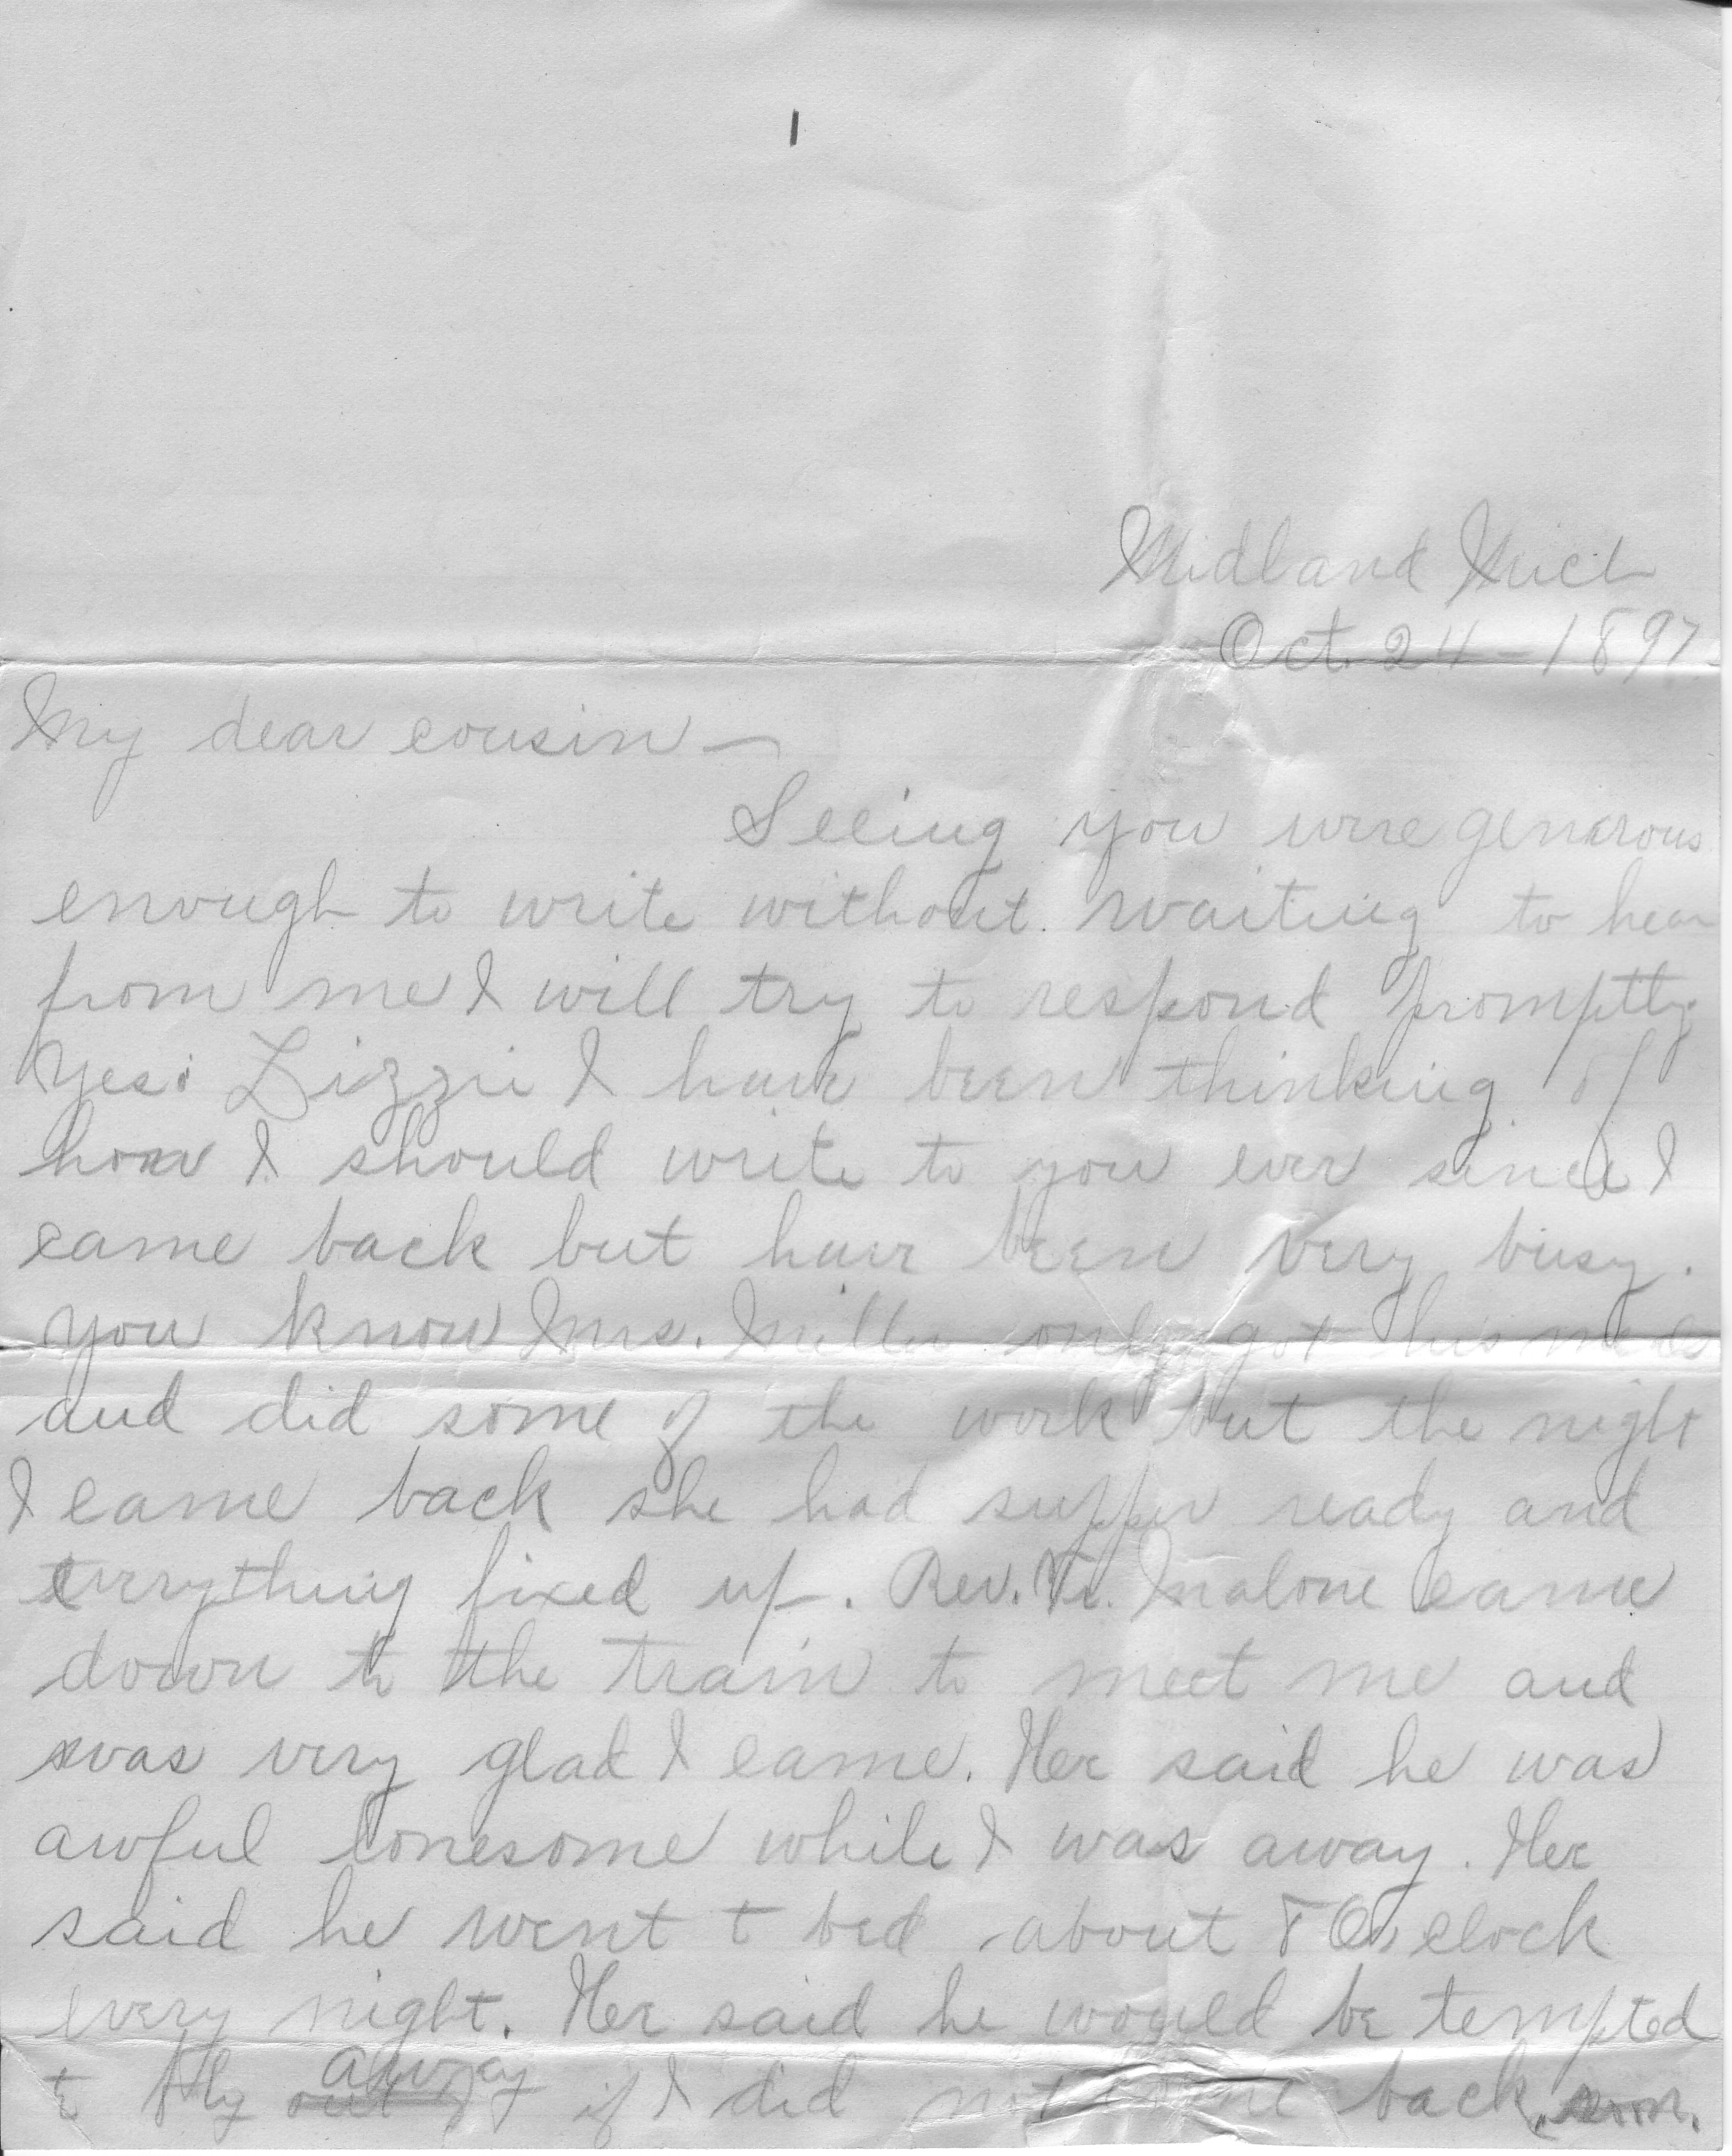 Midland Mich
Oct. 24 - 1897.
My dear cousin —
Seeing you were generous
enough to write without waiting to hear
from me I will try to respond promptly.
Yes: Lizzie I have been thinking of
how I should write to you ever since I
came back but have been very busy.
You know Mrs. Miller only got his meals
and did some of the work but the night
I came back she had supper ready and
everything fixed up. Rev. Fr. Malone came
down to the train to meet me and
was very glad I came. He said he was
awful lonesome while I was away. He
said he went t bed about 8 O,clock
every night. He said he would be tempted
away
to fly out if I did not come back. soon.